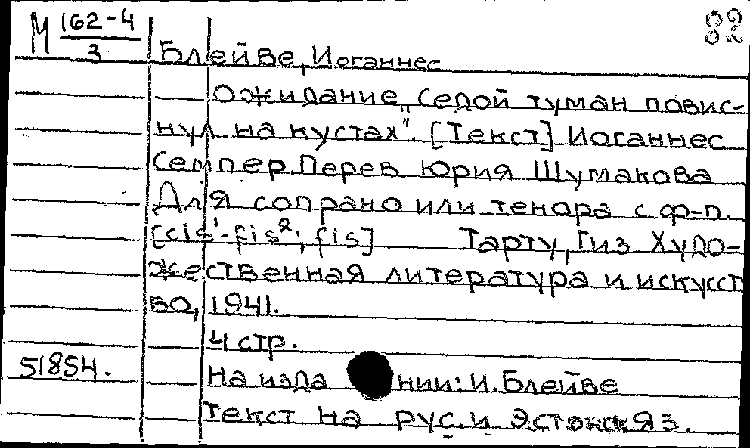 М 162-4
3
82
Блейве, Иоганнес
Ожидание „Седой туман повис-
нул на кустах" [Текст] Иоганнес
Семпер. Перев Юрия Шумакова
Для сопрано или тенора с ф-п.
[cis¹-fis²; fis] Тарту, Гиз Худо-
жественная литература и искусст
во, 1941.
4 стр.
51854.
На изда нии: И. Блейве
Текст на рус. и эстонск яз.